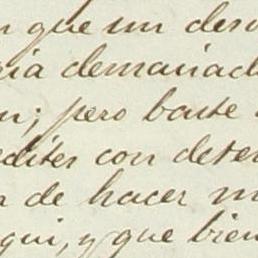 que un des
demaciad
; pero baste
edites con deten
de hacer m
qui, y que bien